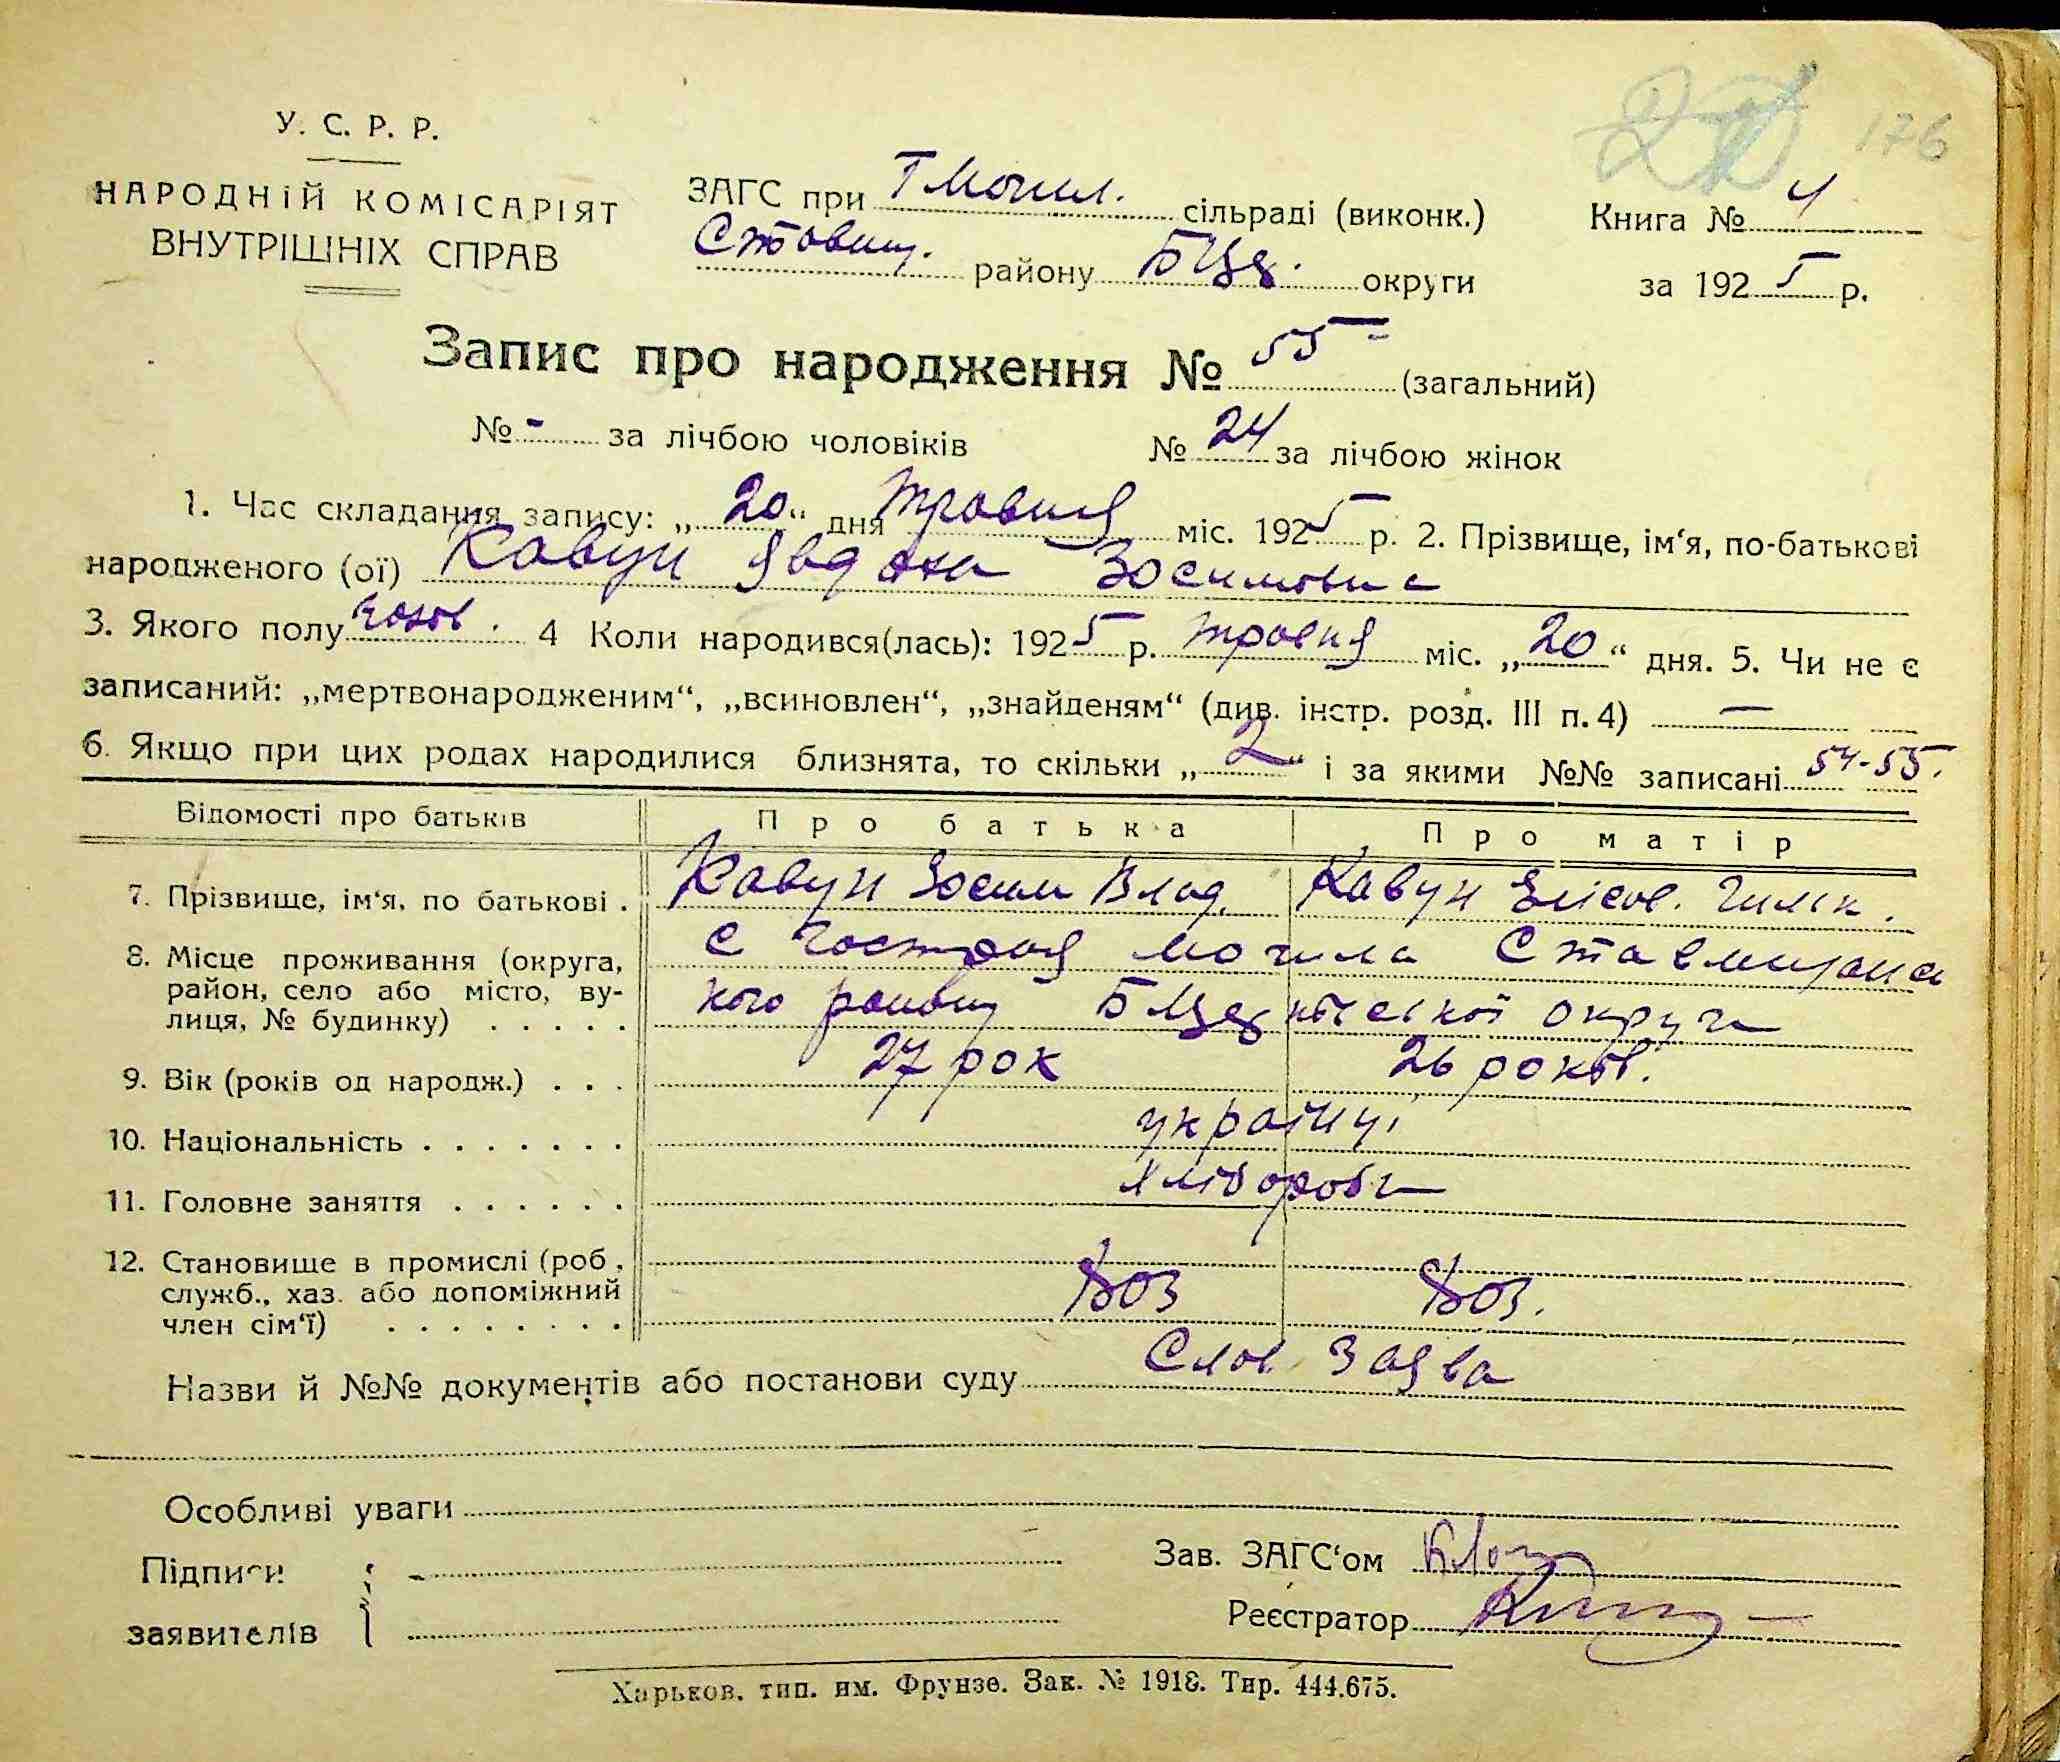 176
У. С. Р. Р.
НАРОДНІЙ КОМІСАРІЯТ
ВНУТРІШНІХ СПРАВ
ЗАГС при Г Могил. сільраді (виконк.)
Ставищ. району БЦер. округи
Книга № 4
за 1925 р.
Запис про народження № 55 (загальний)
№ - за лічбою чоловіків № 24 за лічбою жінок
1. Час складання запису: „20“ дня травня міс. 1925 р. 2. Прізвище, ім‘я, по-батькові
народженого (ої) Кавун Явдоха Зосимовна
3. Якого полу 4 Коли народився(лась): 1925 р. травня міс. „20“ дня. 5. Чи не є
записаний: „мертвонародженим“, „всиновлен“, „знайденям“ (див. інстр. розд. III п. 4) —
6. Якщо при цих родах народилися близнята, то скільки „2“ і за якими №№ записані 54-55.
Відомості про батьків Про батька Про матір
7. Прізвище, ім‘я, по батькові . Кавун Зосим Влад. Кавун Єлісов.
8. Місце проживання (округа, район, село або місто, вулиця, № будинку) . . . . . с Гостра могила Ставищанс
кого району БЦерківської округи
9. Вік (років од народж.) . . . 27 рок 26 років.
10. Національність . . . . . . . українці
11. Головне заняття . . . . . . хлібороби
12. Становище в промислі (роб., служб., хаз. або допоміжний член сім‘ї) . . . . . . . . хоз хоз.
Назви й №№ документів або постанови суду Слов. Заява
Особливі уваги
Підписи
заявителів
Зав. ЗАГС‘ом
Реєстратор
Харьков. тип. им. Фрунзе. Зак. № 1918. Тир. 444.675.